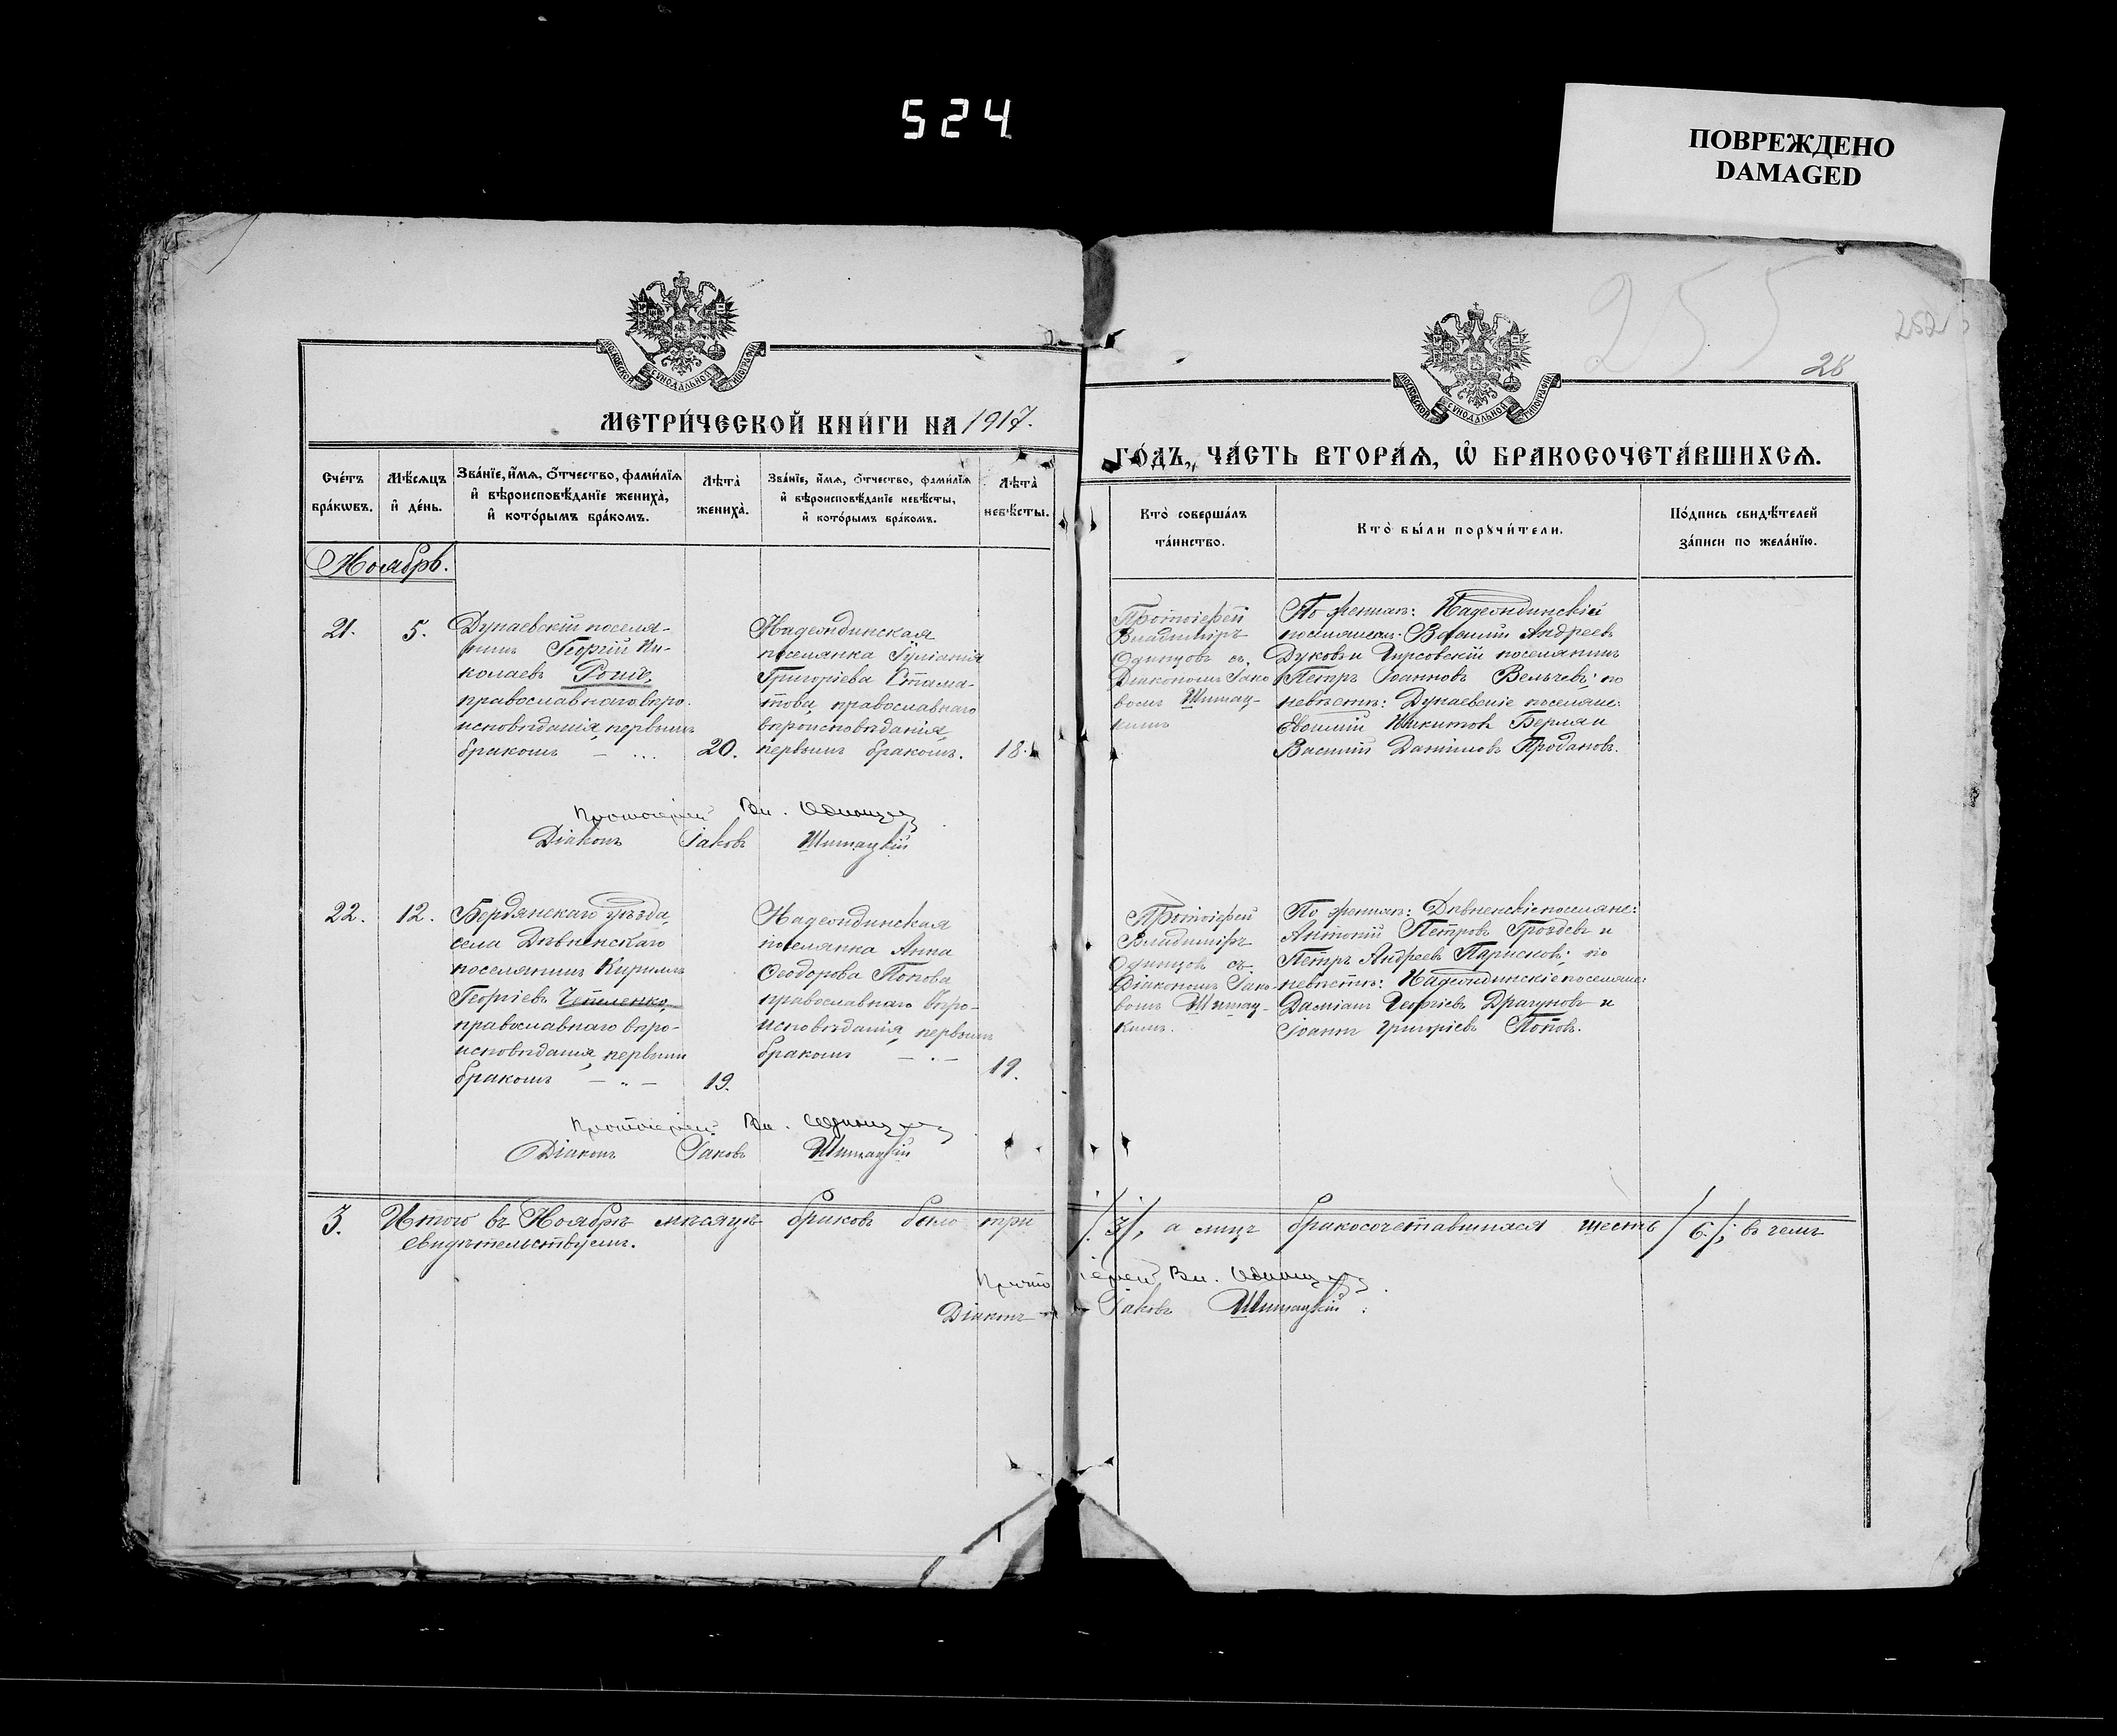 524
ПОВРЕЖДЕНО
DAMAGED
255
252
28
МОСКОВСКОЙ СѴНОДАЛЬНОЙ ТИПОГРАФІИ
МОСКОВСКОЙ СѴНОДАЛЬНОЙ ТИПОГРАФІИ
МЕТРИ́ЧЕСКОЙ КНИ́ГИ НА 1917.
ГО́ДЪ, ЧА́СТЬ ВТОРА́Ѧ, Ѡ҆ БРАКОСОЧЕТА́ВШИХСѦ.
Сче́тъ
бра́кѡвъ.
Мѣ́сѧцъ
и҆ де́нь.
Зва́нїе, и҆́мѧ, ѻ҆́тчество, фами́лїѧ
и҆ вѣроисповѣ́данїе жениха̀,
и҆ кото́рымъ бра́комъ.
Лѣта̀
жениха̀.
Зва́нїе, и҆́мѧ, ѻ҆́тчество, фами́лїѧ
и҆ вѣроисповѣ́данїе невѣ́сты,
и҆ кото́рымъ бра́комъ.
Лѣта̀
невѣ́сты.
Кто̀ соверша́лъ
та́инство.
Кто̀ бы́ли порꙋчи́тели.
По́дпись свидѣ́телей
за́писи по жела́нїю.
Ноябрь.
21.
5.
Дунаевскій поселя-
нинъ Георгій Ни-
колаевъ
православнаго вѣро-
исповѣданія, первымъ
бракомъ
20.
Надеждинская
поселянка Іуліанія
Григоріева Стама-
това, православнаго
вѣроисповѣданія,
первымъ бракомъ.
18.
Протоіерей
Владиміръ
Одинцовъ съ
Діакономъ Іако-
вомъ Шимац-
кимъ
По женихѣ: Надеждинскій
поселянинъ: Василій Андреевъ
Дуковъ и поселянинъ
Петръ Іоанновъ Вельчевъ; по
невѣстѣ: Дунаевскіе поселяне:
Евфимій Никитовъ Берля и
Василій Даниловъ Продановъ.
Протоіерей Вл. Одинцовъ
Діаконъ Іаковъ Шимацкій
22.
12.
Бердянскаго уѣзда,
села Дѣвненскаго
поселянинъ Кириллъ
Георгіевъ
православнаго вѣро-
исповѣданія, первымъ
бракомъ
19.
Надеждинская
поселянка Анна
Ѳеодорова Попова
православнаго вѣро-
исповѣданія, первымъ
бракомъ
19.
Протоіерей
Владиміръ
Одинцовъ съ
Діакономъ Іако-
вомъ Шимац-
кимъ.
По женихѣ: Дѣвненскіе поселяне:
Антоній Петровъ Гроздевъ и
Петръ Андреевъ Парисковъ; по
невѣстѣ: Надеждинскіе поселяне:
Даміанъ Георгіевъ Драгуновъ и
Іоаннъ Григоріевъ Поповъ.
Протоіерей Вл. Одинцовъ
Діаконъ Іаковъ Шимацкій
3. Итого въ Ноябрѣ мѣсяцѣ браковъ было три /3/, а лицъ бракосочетавшихся шесть /6/; въ чемъ
свидѣтельствуемъ.
Протоіерей Вл. Одинцовъ
Діаконъ Іаковъ Шимацкій.